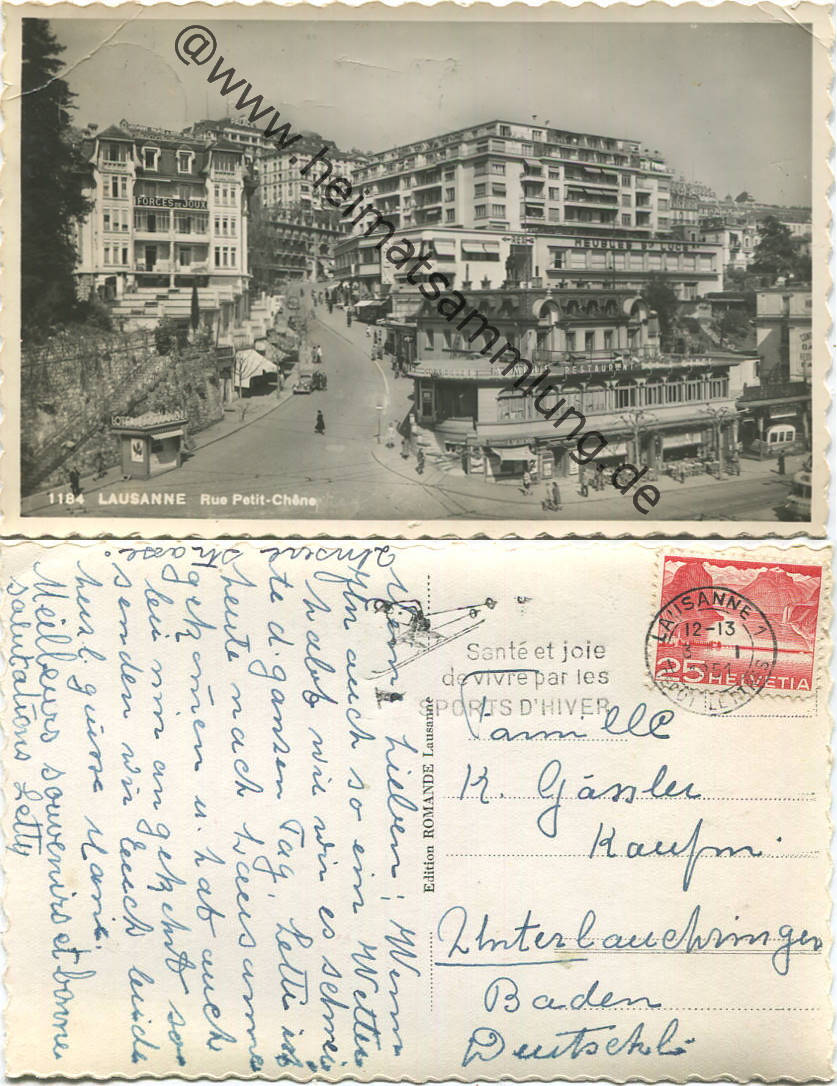 @www.heimatsammlung.de
FORCES DE JOUX
MEUBLES ST LUCE
RESTAURANT
1184 LAUSANNE Rue Petit-Chêne
LAUSANNE 1
12-13
3 I
25 HELVETIA
Santé et joie
de vivre par les
SPORTS D'HIVER
Familie
K. Gässler
Kaufm
Unterlauchringen
Baden
Deutschl
Edition ROMANDE Lausanne
Meine Lieben! Wenn
Ihr auch so ein Wetter
habt wie wir es schnei
te d. ganzen Tag, Letti ist
heute nach Lausanne
gekomen u. hat auch
bei mir angekehrt so
senden wir Euch beide
herzl. Grüsse Mari.
Meilleurs souvenirs et bonne
salutations Letty
Unsere Strasse.